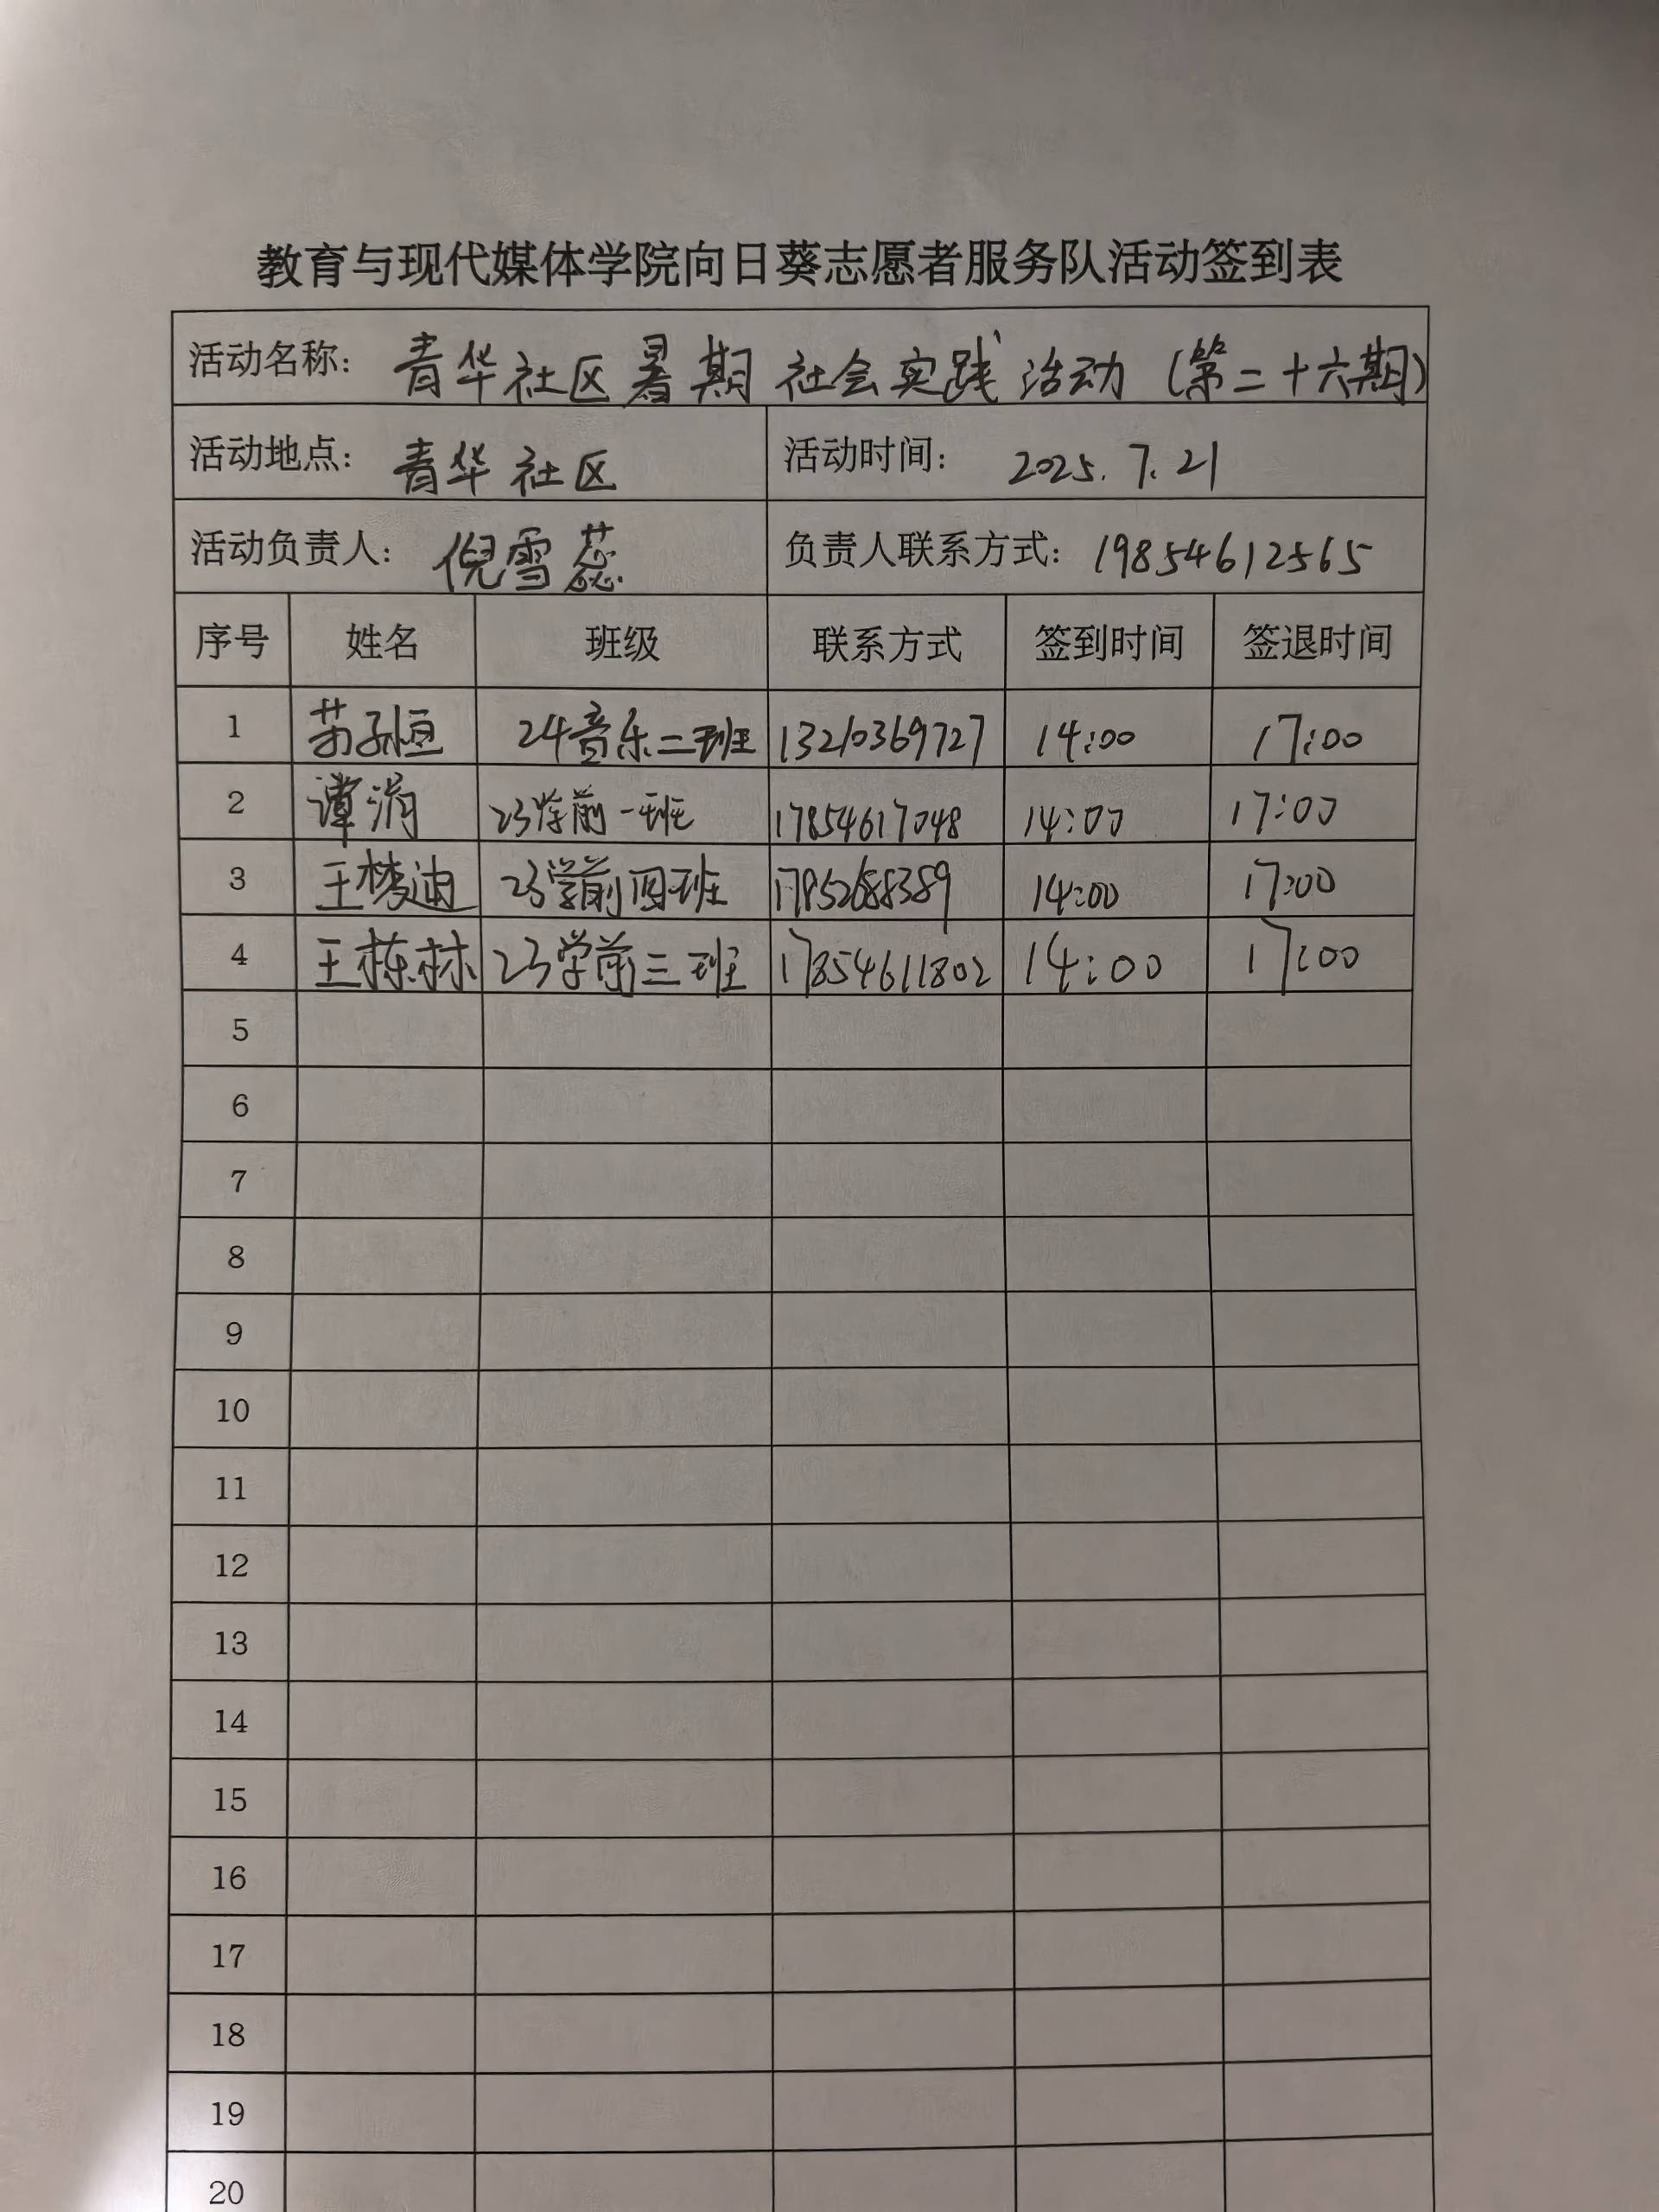 教育与现代媒体学院向日葵志愿者服务队活动签到表
活动名称： 青华社区暑期社会实践活动（第二十六期）
活动地点： 青华社区 活动时间： 2025.7.21
活动负责人： 倪雪蕊 负责人联系方式： 19854612565
序号 姓名 班级 联系方式 签到时间 签退时间
1 苏子恒 24音乐二班 13210369727 14:00 17:00
2 谭涓 23学前一班 17854617048 14:00 17:00
3 王梦迪 23学前四班 14:00 17:00
4 王栋林 23学前三班 17854611802 14:00 17:00
5
6
7
8
9
10
11
12
13
14
15
16
17
18
19
20